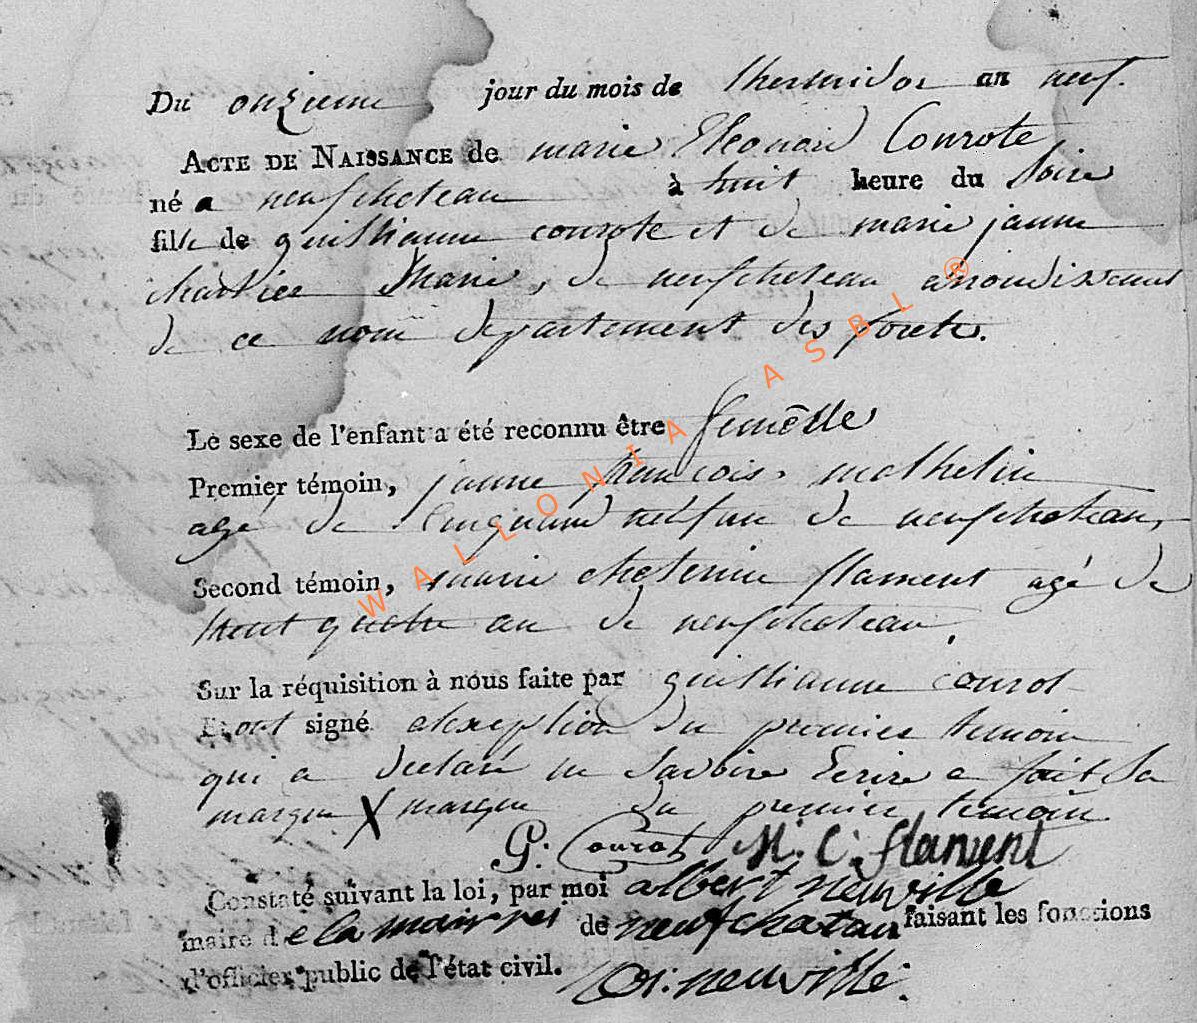 Du onzieme jour du mois de thermidor an neuf.
ACTE DE NAISSANCE de marie Eleonard Conrote
né a neufchateau à huit heure du Soire
fille de guilliaume conrote et de marie jaune
chartier Marié, de neufchateau arrondissement
de ce nom departement des forets.
Le sexe de l'enfant a été reconnu être femelle
Premier témoin, jaune francois mathelin
agé de de neufchateau,
Second témoin, marie flament agé de
trent quatre an de neufchateau.
Sur la réquisition à nous faite par guilliaume conrot
Et ont signé alexeption du premier temoin
qui a declaré ne Savoire Ecrire a fait Sa
marque X marque du premier temoin
G: Conrot M. C. flament
Constaté suivant la loi, par moi albert neuville
maire de la de neufchatau faisant les fonctions
d'officier public de l'état civil. neuville.
WALLONIA ASBL ®